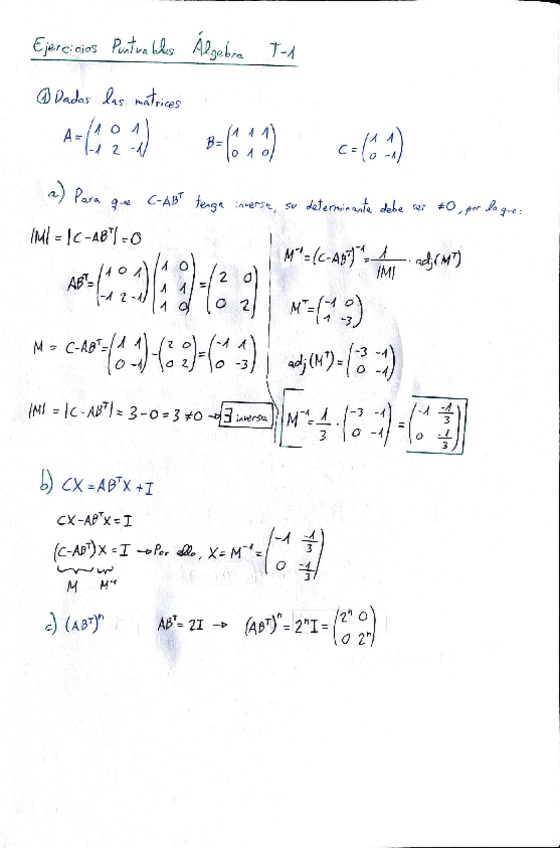 Ejercicios Puntuables Álgebra T-1
① Dadas las matrices
A = (1 0 1; -1 2 -1) B = (1 1 1; 0 1 0) C = (1 1; 0 -1)
a) Para que C-ABᵀ tenga inversa, su determinante debe ser ≠0, por lo que:
|M| = |C-ABᵀ| = 0
ABᵀ = (1 0 1; -1 2 -1) (1 0; 1 1; 1 0) = (2 0; 0 2)
M = C-ABᵀ = (1 1; 0 -1) - (2 0; 0 2) = (-1 1; 0 -3)
|M| = |C-ABᵀ| = 3-0 = 3 ≠ 0 → ∃ inversa
M⁻¹ = (C-ABᵀ)⁻¹ = 1/|M| · adj(Mᵀ)
Mᵀ = (-1 0; 1 -3)
adj(Mᵀ) = (-3 -1; 0 -1)
M⁻¹ = 1/3 · (-3 -1; 0 -1) = (-1 -1/3; 0 -1/3)
b) CX = ABᵀX + I
CX-ABᵀX = I
(C-ABᵀ)X = I → Por ello, X = M⁻¹ = (-1 -1/3; 0 -1/3)
M M⁻¹
c) (ABᵀ)ⁿ ABᵀ = 2I → (ABᵀ)ⁿ = 2ⁿI = (2ⁿ 0; 0 2ⁿ)